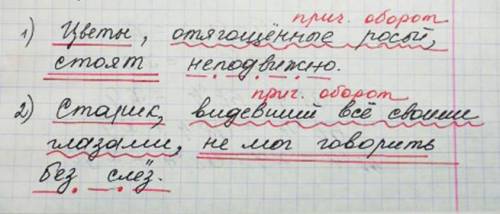 прич. оборот
1) Цветы, отягощённые росой,
стоят неподвижно.
прич. оборот
2) Старик, видевший всё своими
глазами, не мог говорить
без слёз.